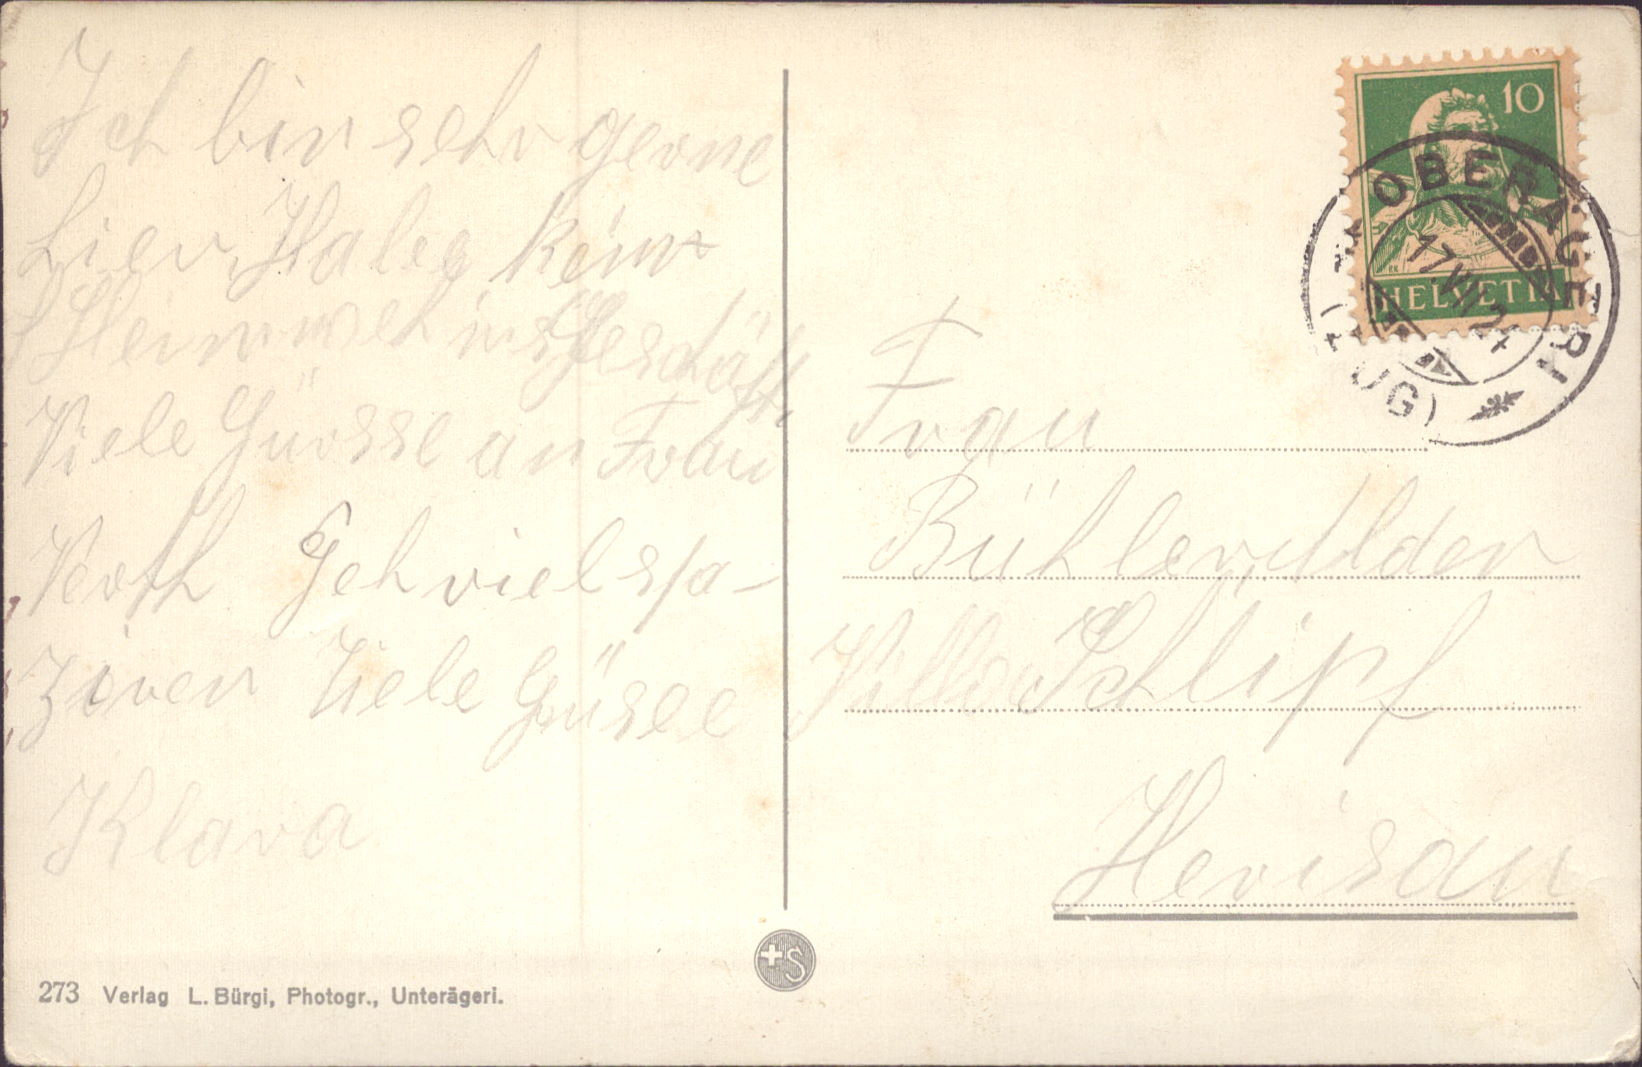 Ich bin sehr gerne
hier, Habe kein
Heimweh ins Geschäft,
Viele Grüsse an Frau
Roth Geh viel spa-
zieren Viele Grüsee
Klara
10
HELVETIA
OBERÄGERI
(ZUG)
17.VII.24
Frau
Bühler
Villa Schlipf
Herisau
273 Verlag L. Bürgi, Photogr., Unterägeri.